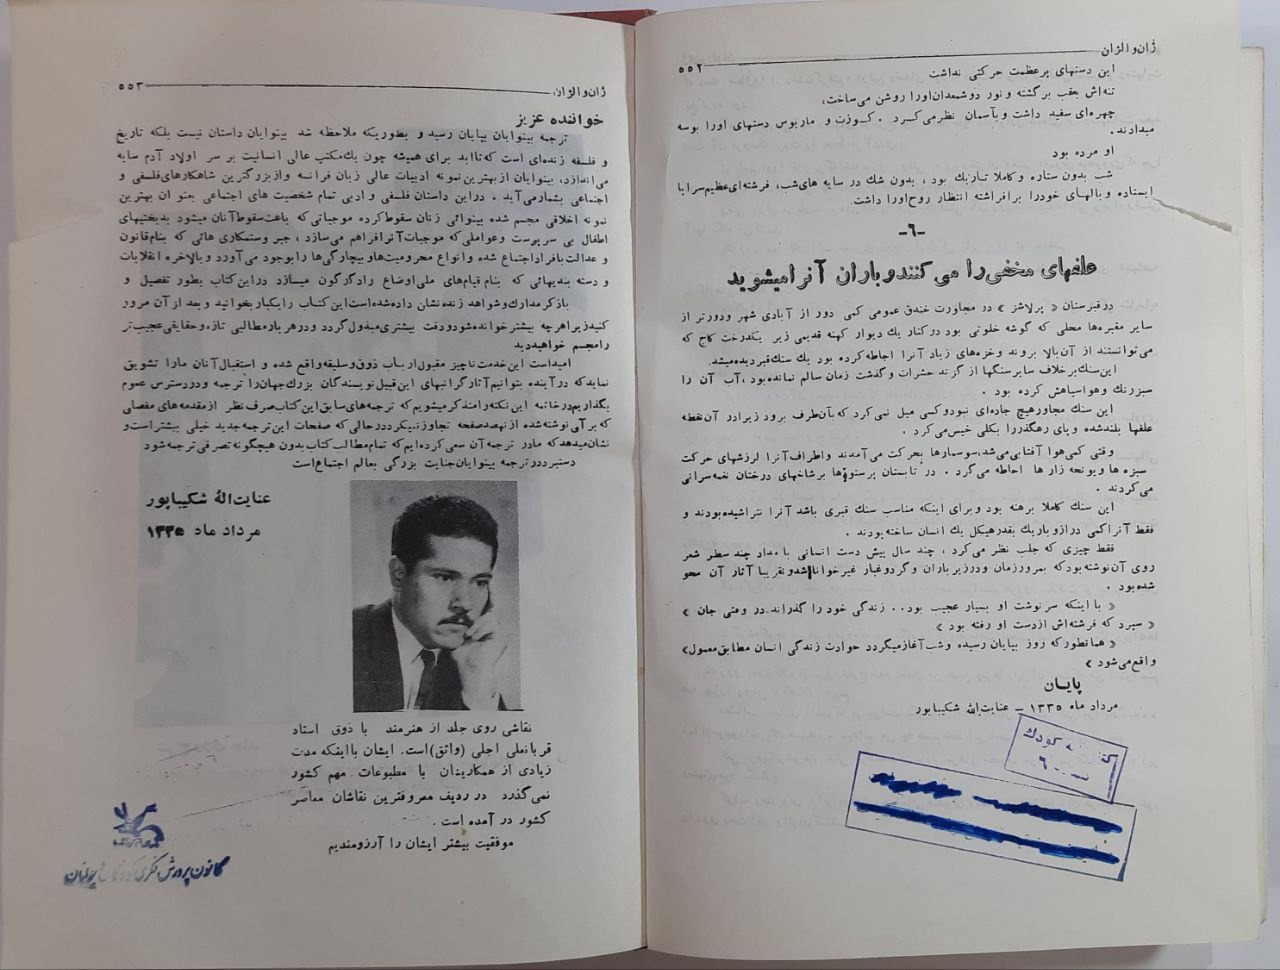 ژان‌والژان
۵۵۲
این دستهای پرعظمت حرکتی نداشت
تنه‌اش بعقب برگشته و نور دوشمعدان اورا روشن می‌ساخت،
چهره‌ای سفید داشت و بآسمان نظر می‌کرد . کوزت و ماریوس دستهای اورا بوسه
میدادند.
او مرده بود
شب بدون ستاره و کاملا تاریک بود ، بدون شك در سایه های‌شب، فرشته‌ای عظیم سراپا
ایستاده و بالهای خودرا برافراشته انتظار روح اورا داشت.
-۶-
علفهای مخفی را می‌کنند و باران آنرا میشوید
در قبرستان « پرلاشز » در مجاورت خندق عمومی کمی دور از آبادی شهر و دورتر از
سایر مقبره‌ها محلی که گوشه خلوتی بود در کنار یك دیوار کهنه قدیمی زیر یکدرخت کاج که
می‌توانستند از آن بالا بروند وخزه‌های زیاد آنرا احاطه کرده بود یك سنك قبر دیده میشد.
این سنك برخلاف سایر سنگها از گزند حشرات و گذشت زمان سالم نمانده بود ، آب آن را
سبزرنك و هوا سیاهش کرده بود .
این سنك مجاور هیچ جاده‌ای نبود و کسی میل نمی‌کرد که بآن طرف برود زیرا در آن نقطه
علفها بلند شده و پای رهگذر را بکلی خیس می‌کرد .
وقتی کمی هوا آفتابی می‌شد، سوسمارها بحرکت می‌آمدند و اطراف آنرا لرزشهای حرکت
سبزه ها و یونجه زار ها احاطه می‌گرد . در تابستان پرستوها برشاخهای درختان نغمه سرائی
می‌کردند .
این سنك کاملا برهنه بود و برای اینکه مناسب سنك قبری باشد آنرا نتراشیده بودند و
فقط آنرا کمی دراز و باریك بقدر هیکل یك انسان ساخته بودند .
فقط چیزی که جلب نظر می‌کرد ، چند سال پیش دست انسانی با مداد چند سطر شعر
روی آن نوشته بود که بمرور زمان و در زیر باران و گرد و غبار غیر خوانا شد و تقریبا آثار آن محو
شده بود .
« با اینکه سرنوشت او بسیار عجیب بود.. زندگی خود را گذراند در وقتی جان »
« سپرد که فرشته‌اش از دست او رفته بود »
« همانطور که روز بپایان رسیده و شب آغاز میگردد حوادث زندگی انسان مطابق معمول»
واقع می‌شود »
پایان
مرداد ماه ۱۳۳۵ - عنایت‌الله شکیباپور
کودك
ژان‌والژان
۵۵۳
خواننده عزیز
ترجمه بینوایان بپایان رسید و بطوریکه ملاحظه شد بینوایان داستان نیست بلکه تاریخ
و فلسفه زنده‌ای است که تا ابد برای همیشه چون یك مکتب عالی انسانیت بر سر اولاد آدم سایه
می‌اندازد، بینوایان از بهترین نمونه ادبیات عالی زبان فرانسه و از بزرگترین شاهکارهای فلسفی و
اجتماعی بشمار می‌آید . در این داستان فلسفی و ادبی تمام شخصیت های اجتماعی بعنوان بهترین
نمونه اخلاقی مجسم شده بینوائی زنان سقوط کرده موجباتی که باعث سقوط آنان میشود بدبختیهای
اطفال بی سرپرست و عواملی که موجبات آنرا فراهم می‌سازد ، جبر و ستمکاری هائی که بنام قانون
و عدالت بافراد اجتماع شده و انواع محرومیت‌ها و بیچارگی‌ها را بوجود می‌آورد و بالاخره انقلابات
و دسته بندیهائی که بنام قیام‌های ملی اوضاع را دگرگون میسازد در این کتاب بطور تفصیل و
باذکر مدارك و شواهد زنده نشان داده شده است این کتاب را یکبار بخوانید و بعد از آن مرور
کنید زیرا هرچه بیشتر خوانده شود و دقت بیشتری مبذول گردد و در هر باره مطالبی تازه و حقایقی عجیب تر
را مجسم خواهید دید
امید است این خدمت ناچیز مقبول ارباب ذوق و سلیقه واقع شده و استقبال آنان مارا تشویق
نماید که در آینده بتوانیم آثار گرانبهای این قبیل نویسندگان بزرك جهان را ترجمه و در دسترس عموم
بگذاریم در خاتمه این نکته را متذکر میشویم که ترجمه‌های سابق این کتاب صرف نظر از مقدمه های مفصلی
که بر آن نوشته شده از نهصد صفحه تجاوز نمیکرد در حالی که صفحات این ترجمه جدید خیلی بیشتر است و
نشان میدهد که ما در ترجمه آن سعی کرده‌ایم که تمام مطالب کتاب بدون هیچگونه تصرفی ترجمه شود
دستبرد در ترجمه بینوایان جنایت بزرگی بعالم اجتماع است
عنایت‌الله شکیباپور
مرداد ماه ۱۳۳۵
نقاشی روی جلد از هنرمند با ذوق استاد
قربانعلی اجلی (واثق) است. ایشان با اینکه مدت
زیادی از همکاریشان با مطبوعات مهم کشور
نمی‌گذرد در ردیف معروفترین نقاشان معاصر
کشور در آمده است .
موفقیت بیشتر ایشان را آرزومندیم
کانون پرورش فکری کودکان